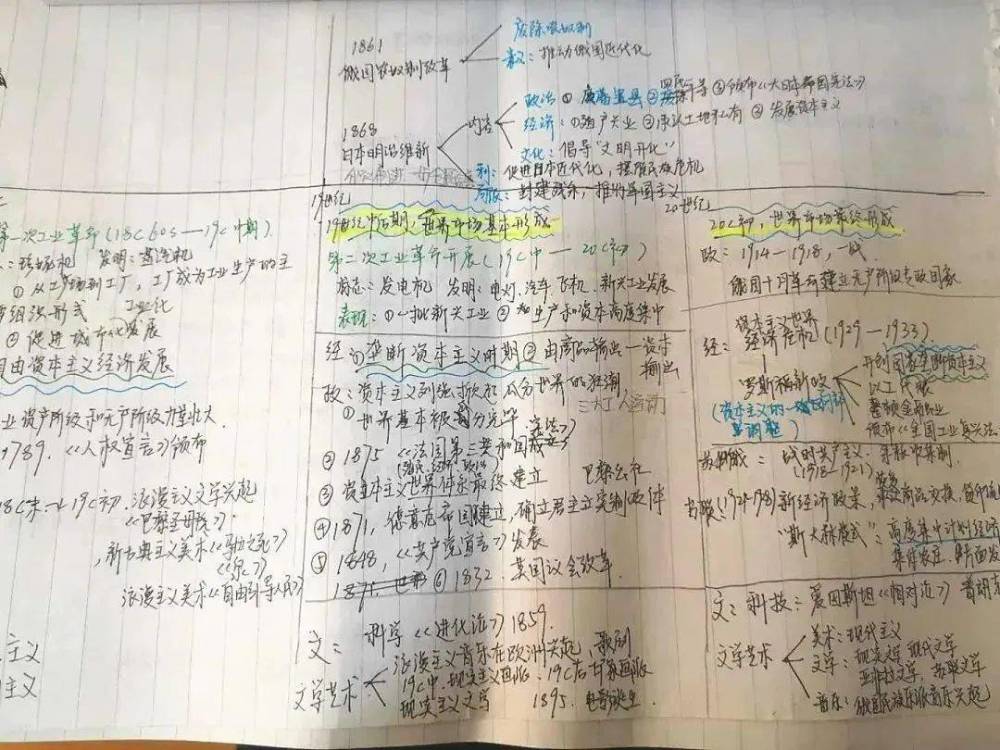 1861
俄国农奴制改革
废除农奴制
意义：推动俄国近代化
1868
日本明治维新
内容
政治：①废藩置县 ②四民平等 ③颁布《大日本帝国宪法》
经济：①殖产兴业 ②承认土地私有 ③发展资本主义
文化：倡导"文明开化"
利：促进日本近代化，摆脱民族危机
局限：封建残余，推行军国主义
19世纪
20世纪
第一次工业革命(18C 60s——19C中期)
发明：蒸汽机
①从工场到工厂，工厂成为工业生产的主
组织形式
②促进城市化发展
自由资本主义经济发展
业资产阶级和无产阶级力量壮大
1789.《人权宣言》颁布
18C末→19C初 浪漫主义文学兴起
《巴黎圣母院》
新古典主义美术《马拉之死》
《泉》
浪漫主义美术《自由引导人民》
主义
主义
19世纪中后期，世界市场基本形成
第二次工业革命开展(19C中——20C初)
标志：发电机 发明：电灯.汽车.飞机.新兴工业发展
表现：①一批新兴工业 ②生产和资本高度集中
经：①垄断资本主义时期 ②由商品输出—资本
输出
政：资本主义列强掀起瓜分世界的狂潮
三大工人运动
①世界基本被瓜分完毕
②1875《法国第三共和国宪法》
③资本主义世界体系最终建立 巴黎公社
④1871，德意志帝国建立，确立君主立宪制政体
⑤1848，《共产党宣言》发表
⑥1832.英国议会改革.
文：科学《进化论》1859.
文学艺术
浪漫主义音乐在欧洲兴起 歌剧
19C中 现实主义画派.19C后 印象画派
现实主义文学 1895.电影诞生
20C初，世界市场最终形成
政：1914—1918，一战
俄国十月革命建立无产阶级专政国家
经：资本主义世界
经济危机(1929—1933)
罗斯福新政
开创国家垄断资本主义
以工代赈
整顿金融业
颁布《全国工业复兴法》
战时共产主义
(1918—1921)
新经济政策，
"斯大林模式"：高度集中计划经济
文：科技：爱因斯坦《相对论》
文学艺术
美术：现代主义
文学：现实文学 现代文学
亚非拉文学.苏联文学
音乐：俄国民族乐派音乐兴起